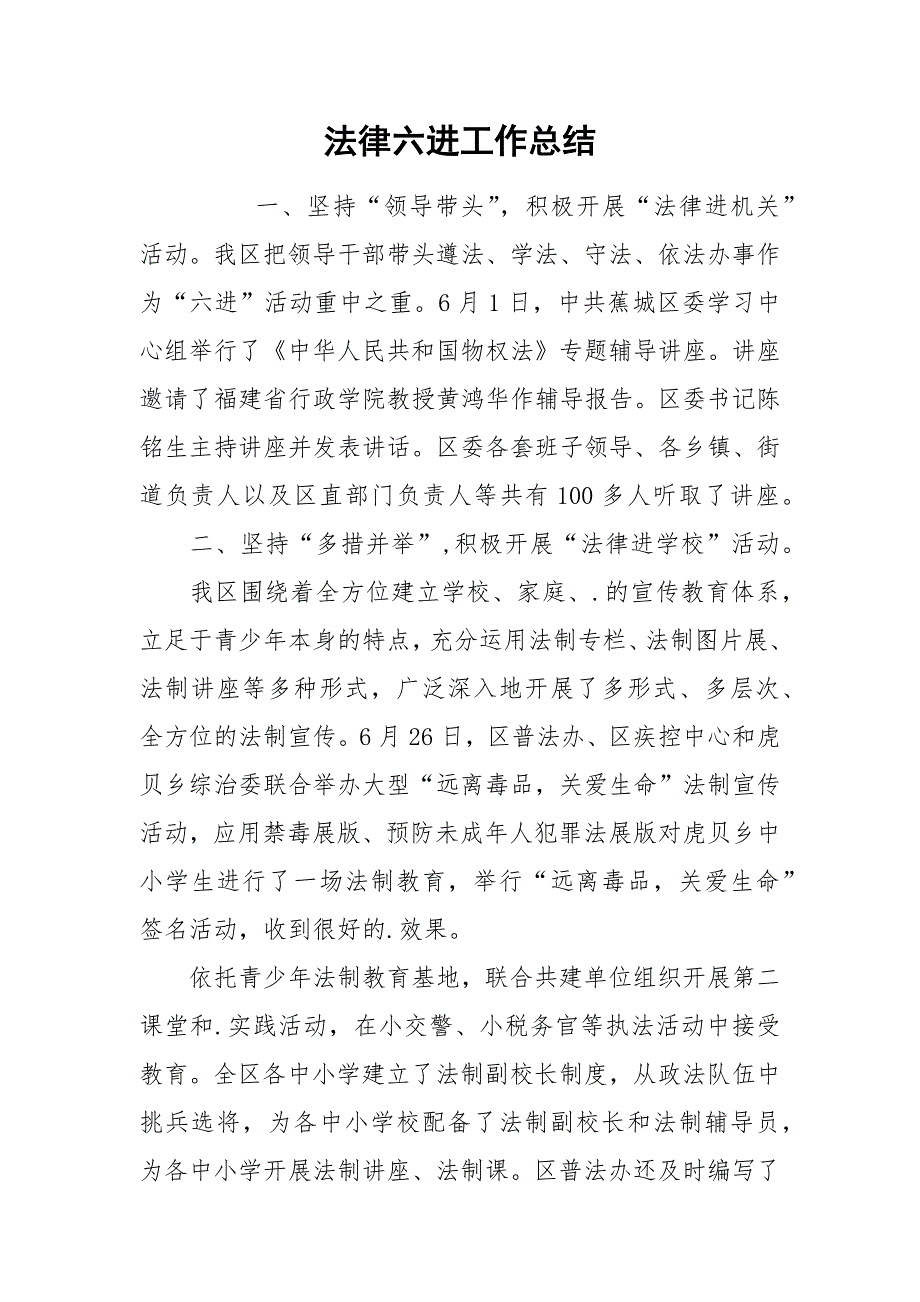 法律六进工作总结
一、坚持“领导带头”，积极开展“法律进机关”
活动。我区把领导干部带头遵法、学法、守法、依法办事作
为“六进”活动重中之重。6月1日，中共蕉城区委学习中
心组举行了《中华人民共和国物权法》专题辅导讲座。讲座
邀请了福建省行政学院教授黄鸿华作辅导报告。区委书记陈
铭生主持讲座并发表讲话。区委各套班子领导、各乡镇、街
道负责人以及区直部门负责人等共有100多人听取了讲座。
二、坚持“多措并举”,积极开展“法律进学校”活动。
我区围绕着全方位建立学校、家庭、.的宣传教育体系，
立足于青少年本身的特点，充分运用法制专栏、法制图片展、
法制讲座等多种形式，广泛深入地开展了多形式、多层次、
全方位的法制宣传。6月26日，区普法办、区疾控中心和虎
贝乡综治委联合举办大型“远离毒品，关爱生命”法制宣传
活动，应用禁毒展版、预防未成年人犯罪法展版对虎贝乡中
小学生进行了一场法制教育，举行“远离毒品，关爱生命”
签名活动，收到很好的.效果。
依托青少年法制教育基地，联合共建单位组织开展第二
课堂和.实践活动，在小交警、小税务官等执法活动中接受
教育。全区各中小学建立了法制副校长制度，从政法队伍中
挑兵选将，为各中小学校配备了法制副校长和法制辅导员，
为各中小学开展法制讲座、法制课。区普法办还及时编写了